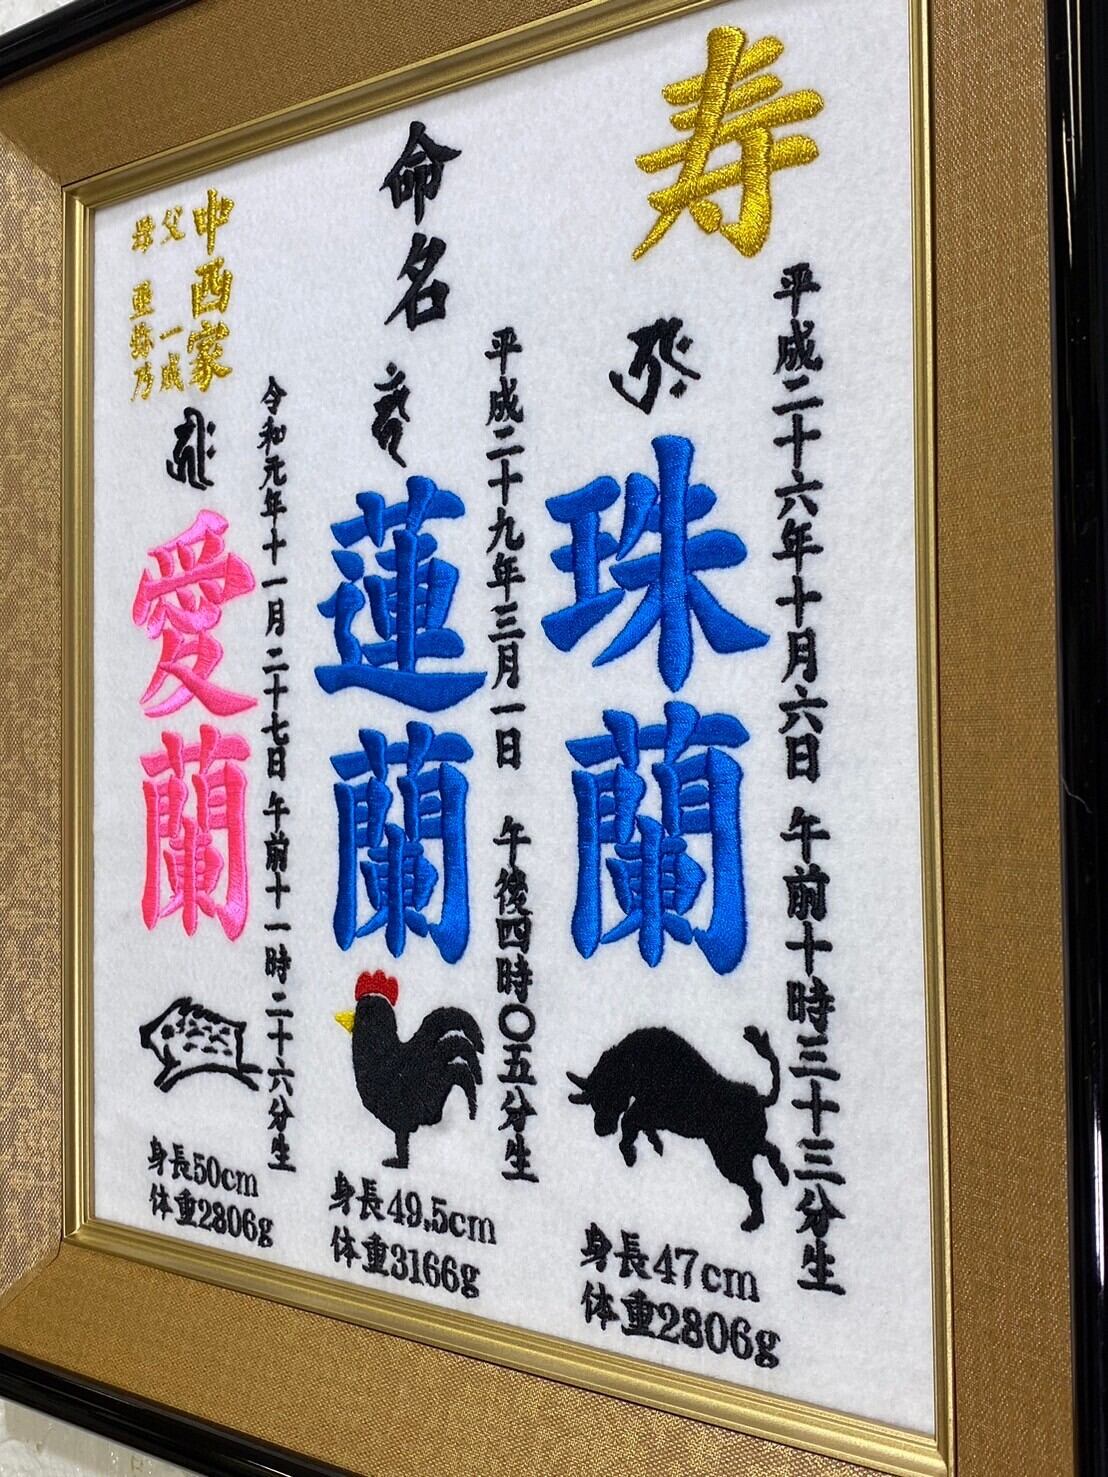 寿
平成二十六年十月六日 午前十時三十三分生
珠蘭
身長47cm
体重2806g
命名
平成二十九年三月一日 午後四時〇五分生
蓮蘭
身長49.5cm
体重3166g
令和元年十一月二十七日 午前十一時二十六分生
愛蘭
身長50cm
体重2806g
中西家
父 一成
母 亜弥乃